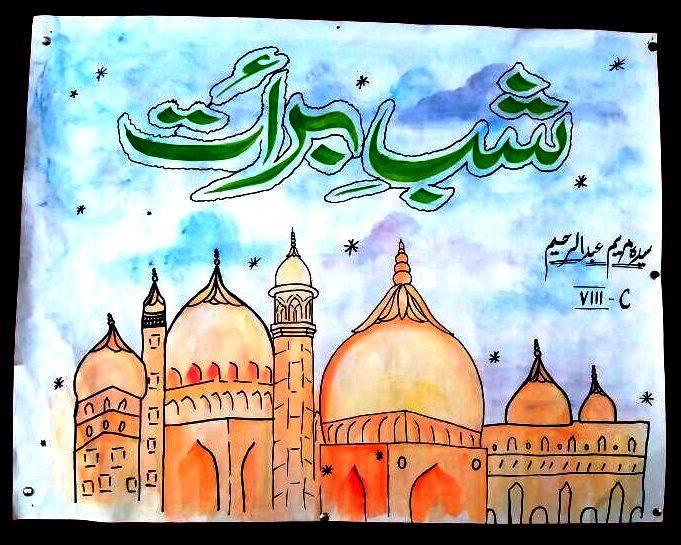 شبِ برأت
سیدہ مریم عبدالرحیم
VIII - C